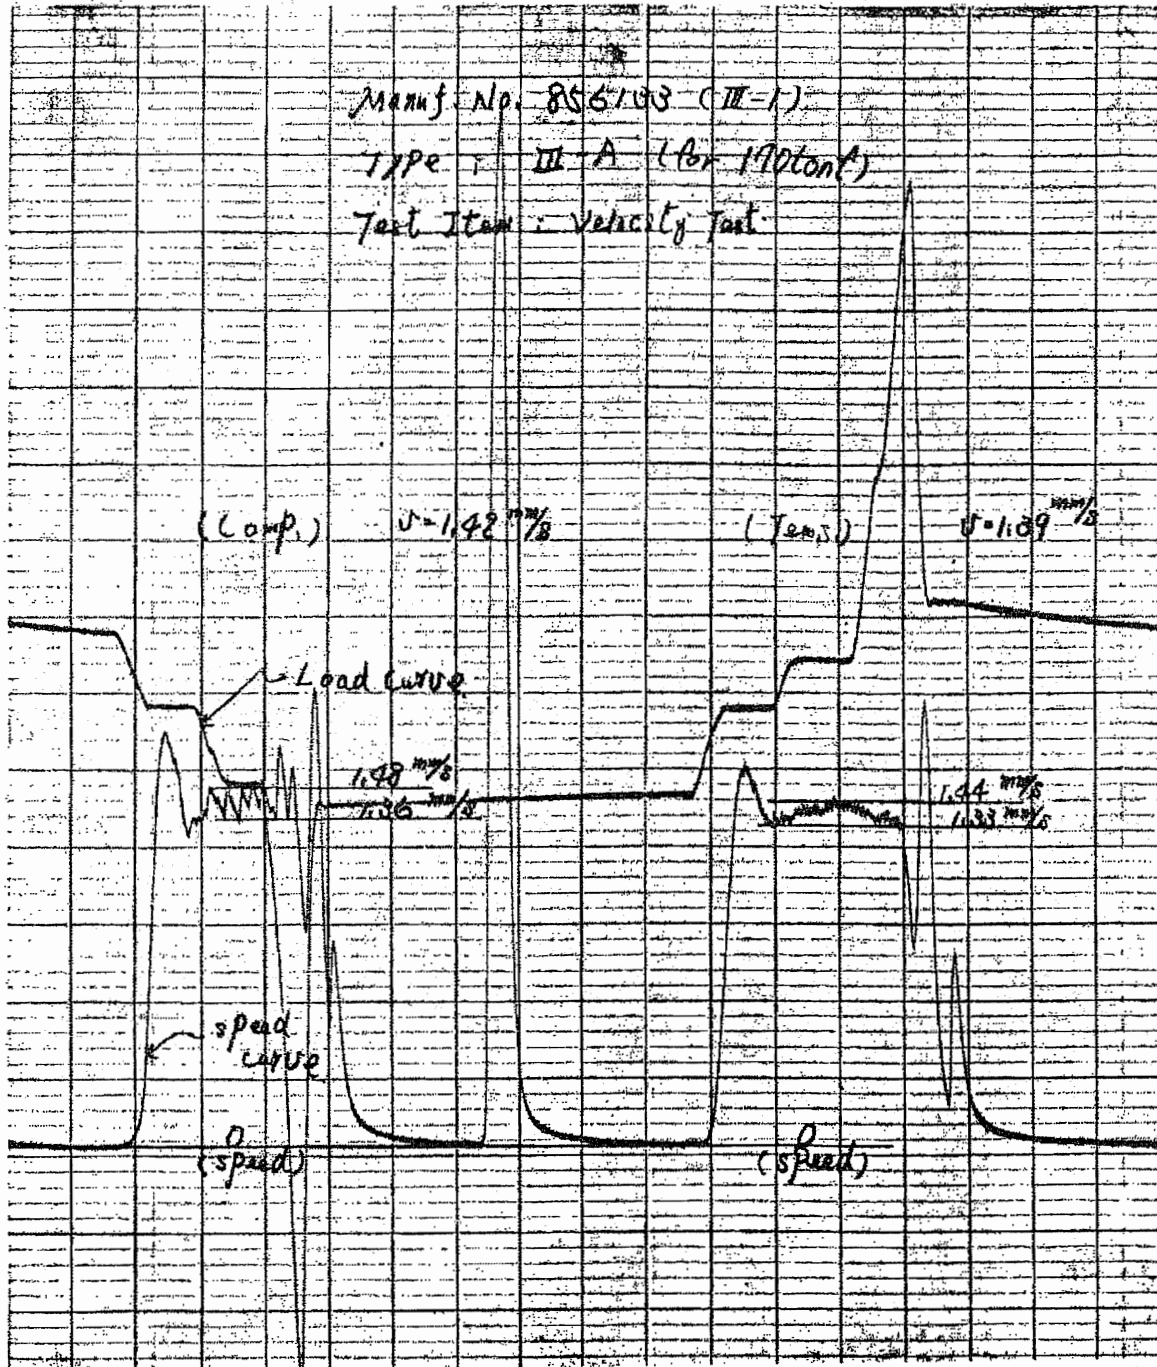 Manuf. No. 856133 (III-1)
Type : III A (for 170tonf)
Test Item : Velocity Test
(Comp.) v=1.42 mm/s
(Tens) v=1.39 mm/s
Load curve
1.48 mm/s
1.36 mm/s
1.44 mm/s
1.33 mm/s
speed
curve
0
(speed)
0
(speed)